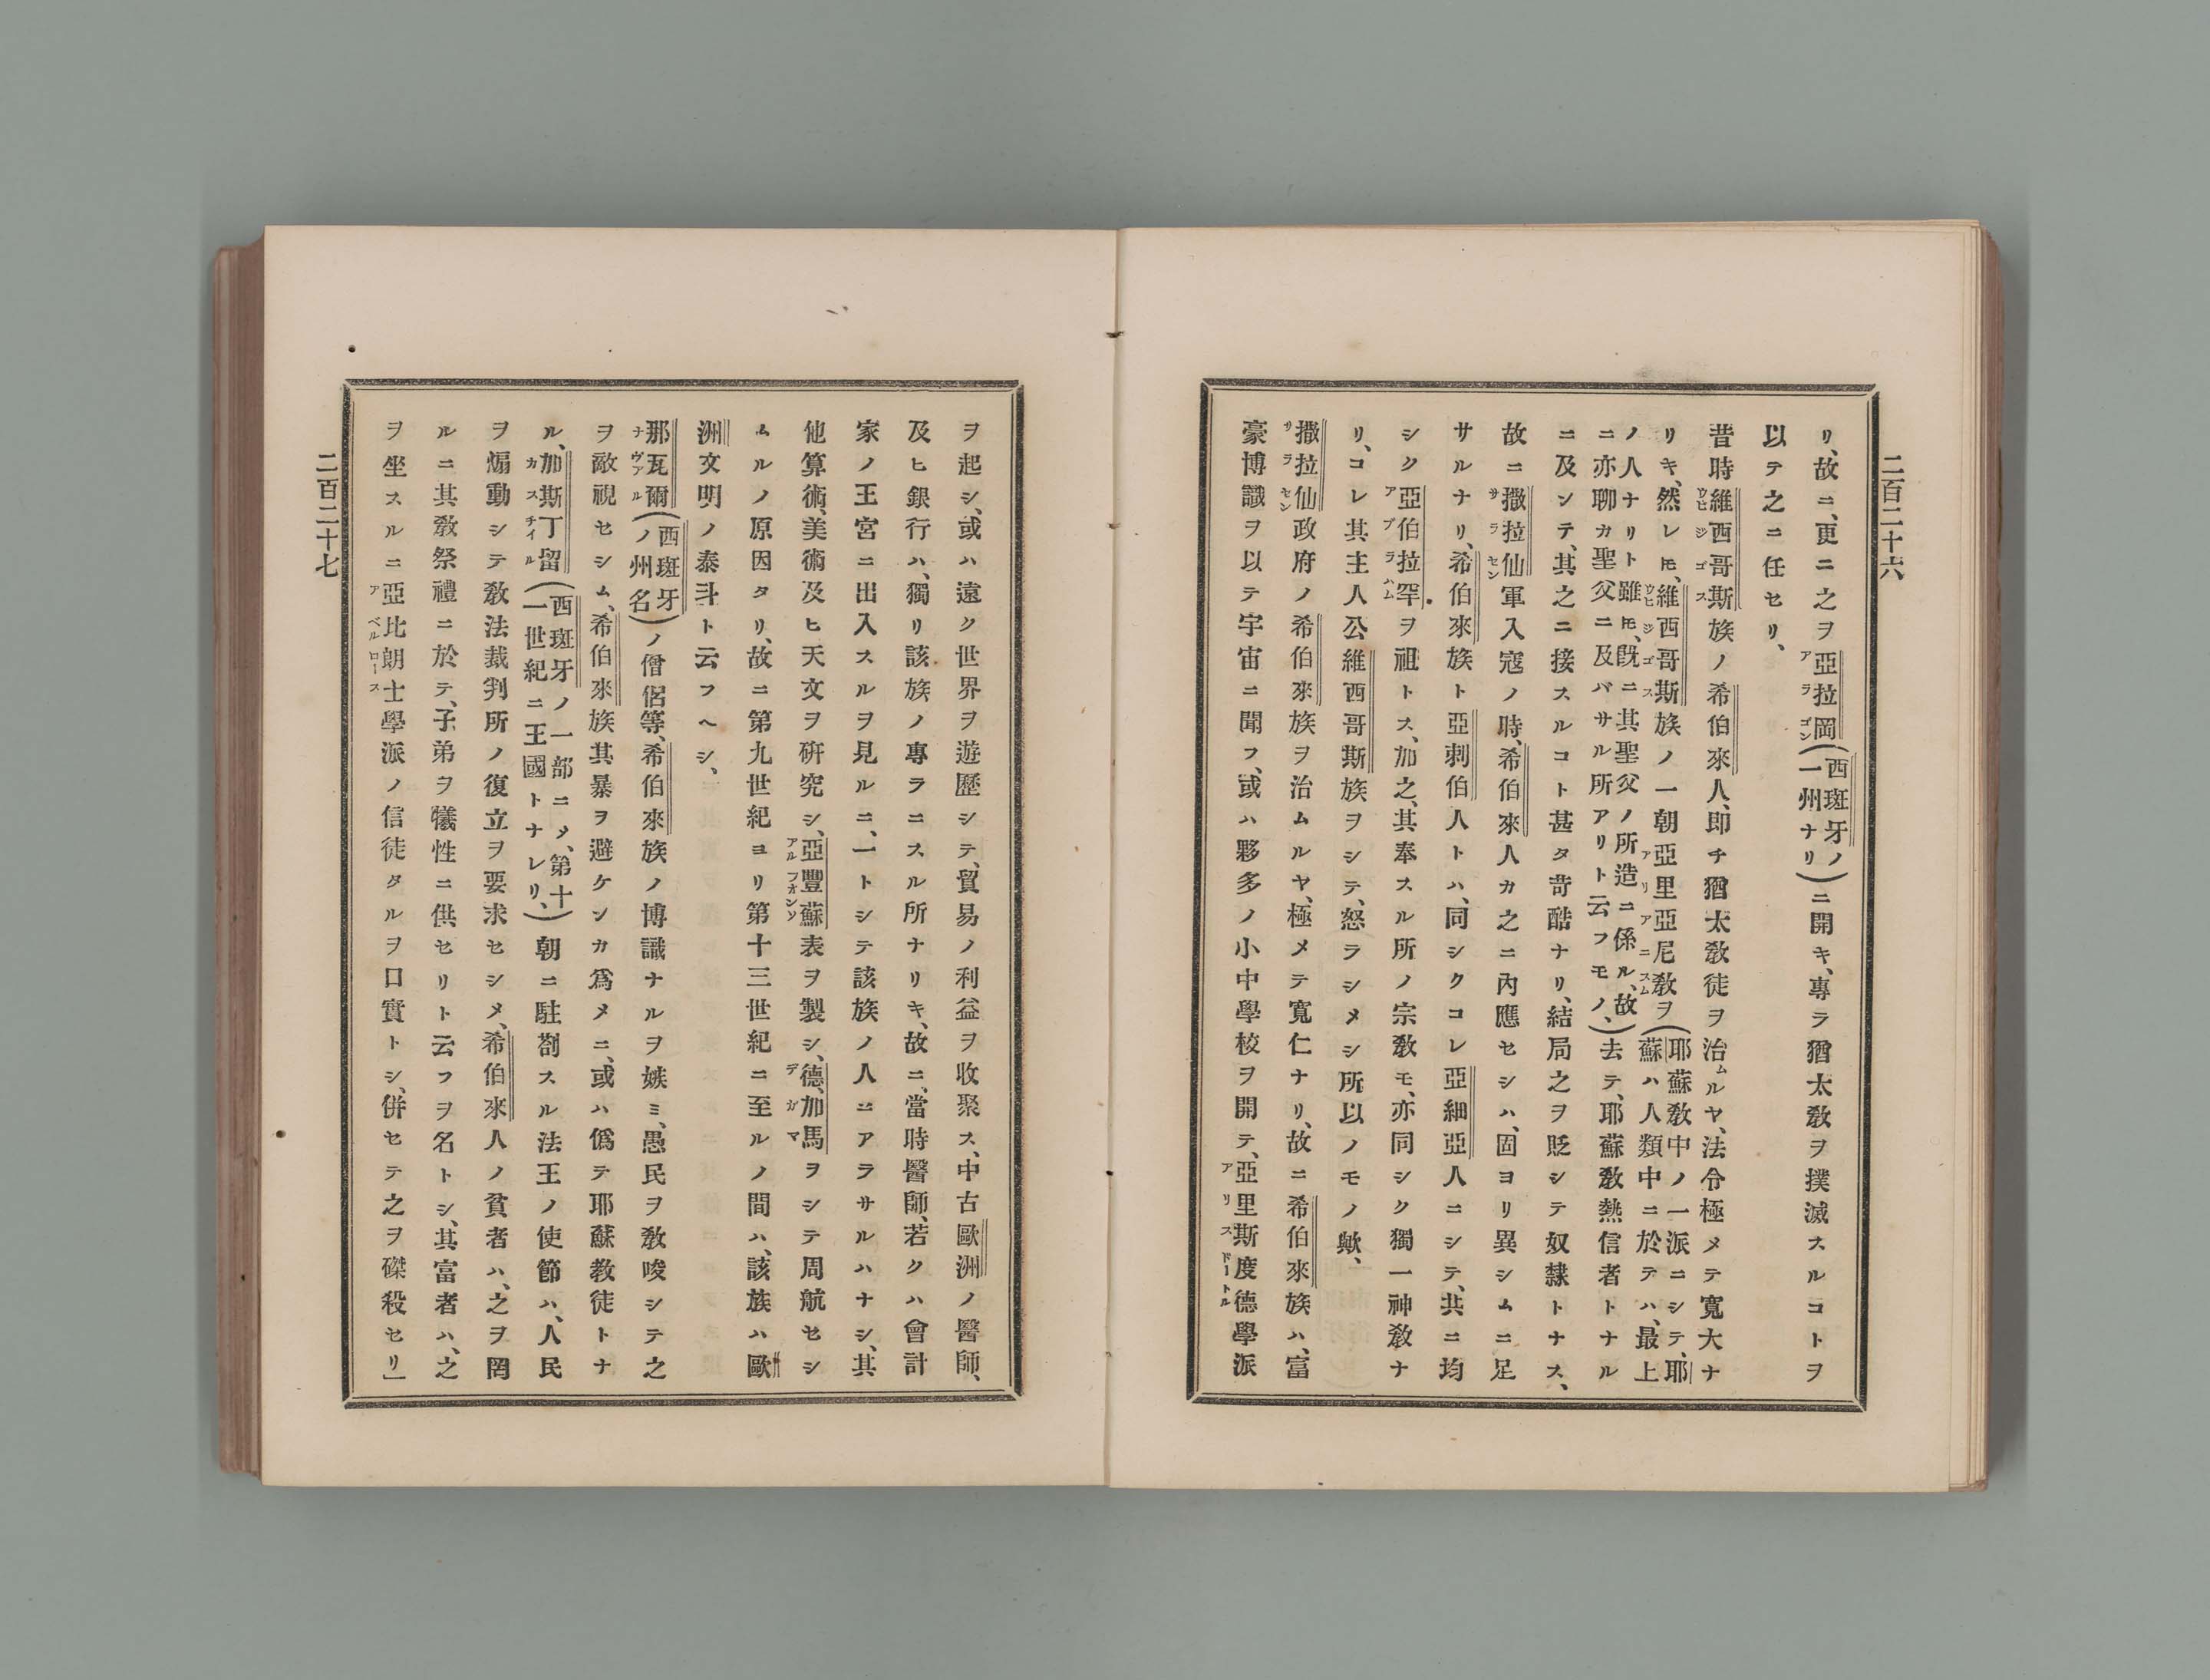 二百二十六
リ、故ニ、更ニ之ヲ亞拉岡(西斑牙ノ一州ナリ)ニ開キ、專ラ猶太敎ヲ撲滅スルコトヲ
以テ之ニ任セリ、
昔時維西哥斯族ノ希伯來人、即チ猶太敎徒ヲ治ムルヤ、法令極メテ寬大ナ
リキ、然レ𪜈、維西哥斯族ノ一朝亞里亞尼敎ヲ(耶蘇敎中ノ一派ニシテ、耶蘇ハ人類中ニ於テハ、最上
ノ人ナリト雖𪜈、既ニ其聖父ノ所造ニ係ル、故ニ亦聊カ聖父ニ及バサル所アリト云フモノ、)去テ、耶蘇敎熱信者トナル
ニ及ンテ、其之ニ接スルコト甚タ苛酷ナリ、結局之ヲ貶シテ奴隸トナス、
故ニ撒拉仙軍入寇ノ時、希伯來人カ之ニ內應セシハ、固ヨリ異シムニ足
サルナリ、希伯來族ト亞剌伯人トハ、同シクコレ亞細亞人ニシテ、共ニ均
シク亞伯拉罕ヲ祖トス、加之、其奉スル所ノ宗敎モ、亦同シク獨一神敎ナ
リ、コレ其主人公維西哥斯族ヲシテ、怒ラシメシ所以ノモノ歟、
撒拉仙政府ノ希伯來族ヲ治ムルヤ、極メテ寬仁ナリ、故ニ希伯來族ハ、富
豪博識ヲ以テ宇宙ニ聞フ、或ハ夥多ノ小中學校ヲ開テ、亞里斯度德學派
ヲ起シ、或ハ遠ク世界ヲ遊歷シテ、貿易ノ利益ヲ收聚ス、中古歐洲ノ醫師、
及ヒ銀行ハ、獨リ該族ノ專ラニスル所ナリキ、故ニ、當時醫師、若クハ會計
家ノ王宮ニ出入スルヲ見ルニ、一トシテ該族ノ人ニアラサルハナシ、其
他算術、美術及ヒ天文ヲ硏究シ、亞豐蘇表ヲ製シ、德、加馬ヲシテ周航セシ
ムルノ原因タリ、故ニ第九世紀ヨリ第十三世紀ニ至ルノ間ハ、該族ハ歐
洲文明ノ泰斗ト云フヘシ、
那瓦爾(西斑牙ノ州名)ノ僧侶等、希伯來族ノ博識ナルヲ嫉ミ、愚民ヲ敎唆シテ之
ヲ敵視セシム、希伯來族其暴ヲ避ケンカ爲メニ、或ハ僞テ耶蘇敎徒トナ
ル、加斯丁留(西斑牙ノ一部ニメ、第十一世紀ニ王國トナレリ、)朝ニ駐剳スル法王ノ使節ハ、人民
ヲ煽動シテ敎法裁判所ノ復立ヲ要求セシメ、希伯來人ノ貧者ハ、之ヲ罔
ルニ其敎祭禮ニ於テ、子弟ヲ犧性ニ供セリト云フヲ名トシ、其富者ハ、之
ヲ坐スルニ亞比朗士學派ノ信徒タルヲ口實トシ、併セテ之ヲ磔殺セリ」
二百二十七